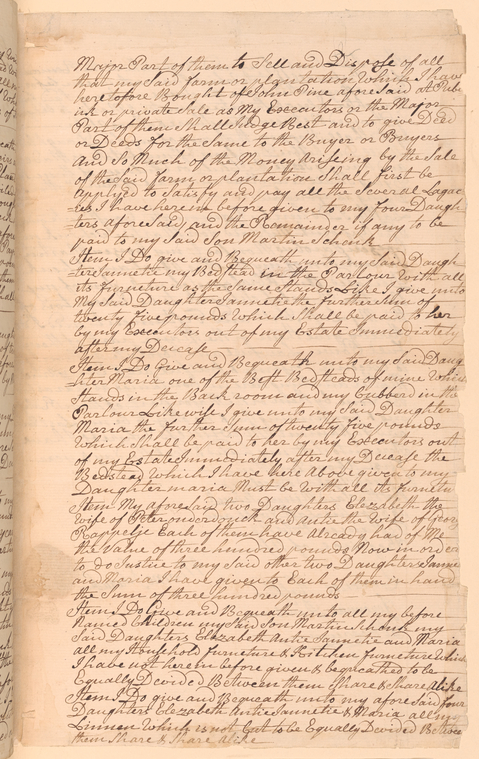 Major Part of them to Sell and Dispose of all
that my Said farm or plantation Which I have
heretofore Bought of John Pine aforesaid at Pub
lick or private Sale as My Executors or the Major
Part of them Shall Judge Best and to give Deed
or Deeds for the Same to the Buyer or Buyers
And So Much of the Money Arising by the Sale
of the Said farm or plantation Shall first be
Applyed to Satisfy and pay all the Several Lagac
=ies I have herein before given to my four Daugh
=ters aforesaid, and the Remainder if any to be
paid to my Said Son Martin Schenk
Item, I Do give and Bequeath unto my Said Daugh
=ter Jannetie my Bedstead in the Parlour With all
its furneture as the Same Stands Like I give unto
My Said Daughter Jannetie the further Sum of
twenty five pounds Which Shall be paid to her
by my Executors out of my Estate Immediately
after my Decease
Item, I Do Give and Bequeath unto my Said Daug
hter Maria one of the Best Bedsteads of mine Which
Stands in the Back room and my Cubberd in the
Parlour Likewise I give unto my Said Daughter
Maria the further Sum of twenty five pounds
Which Shall be paid to her by my Executors out
of my Estate Immediately after my Decease the
Bedstead Which I have here Above given to my
Daughter maria Must be With all its furnetu
Item, My aforesaid two Daughters Elezabeth the
Wife of Peter onderdonck and Antie the Wife of Geor
Rappelje Each of them have Already had of Me
the Value of three hundred pounds Now in order
to do Justice to my Said other two Daughters Janne
and Maria I have given to Each of them in hand
the Sum of three hundred pounds
Item, I Do Give and Bequeath unto all my before
Named Children my Said Son Martin Schenk my
Said Daughters Elezabeth Antie Jannetie and Maria
all my Household furneture & Kitchen furneture Which
I have not herein before given & beqeathed to be
Equally Devided Between them Share & Share Alike
Item, I Do give and Bequeath unto my aforesaid four
Daughters Elezabeth Antie Jannetie & Maria all my
Linnen Which is not Cut to be Equally Devided Betwee
them Share & Share Alike